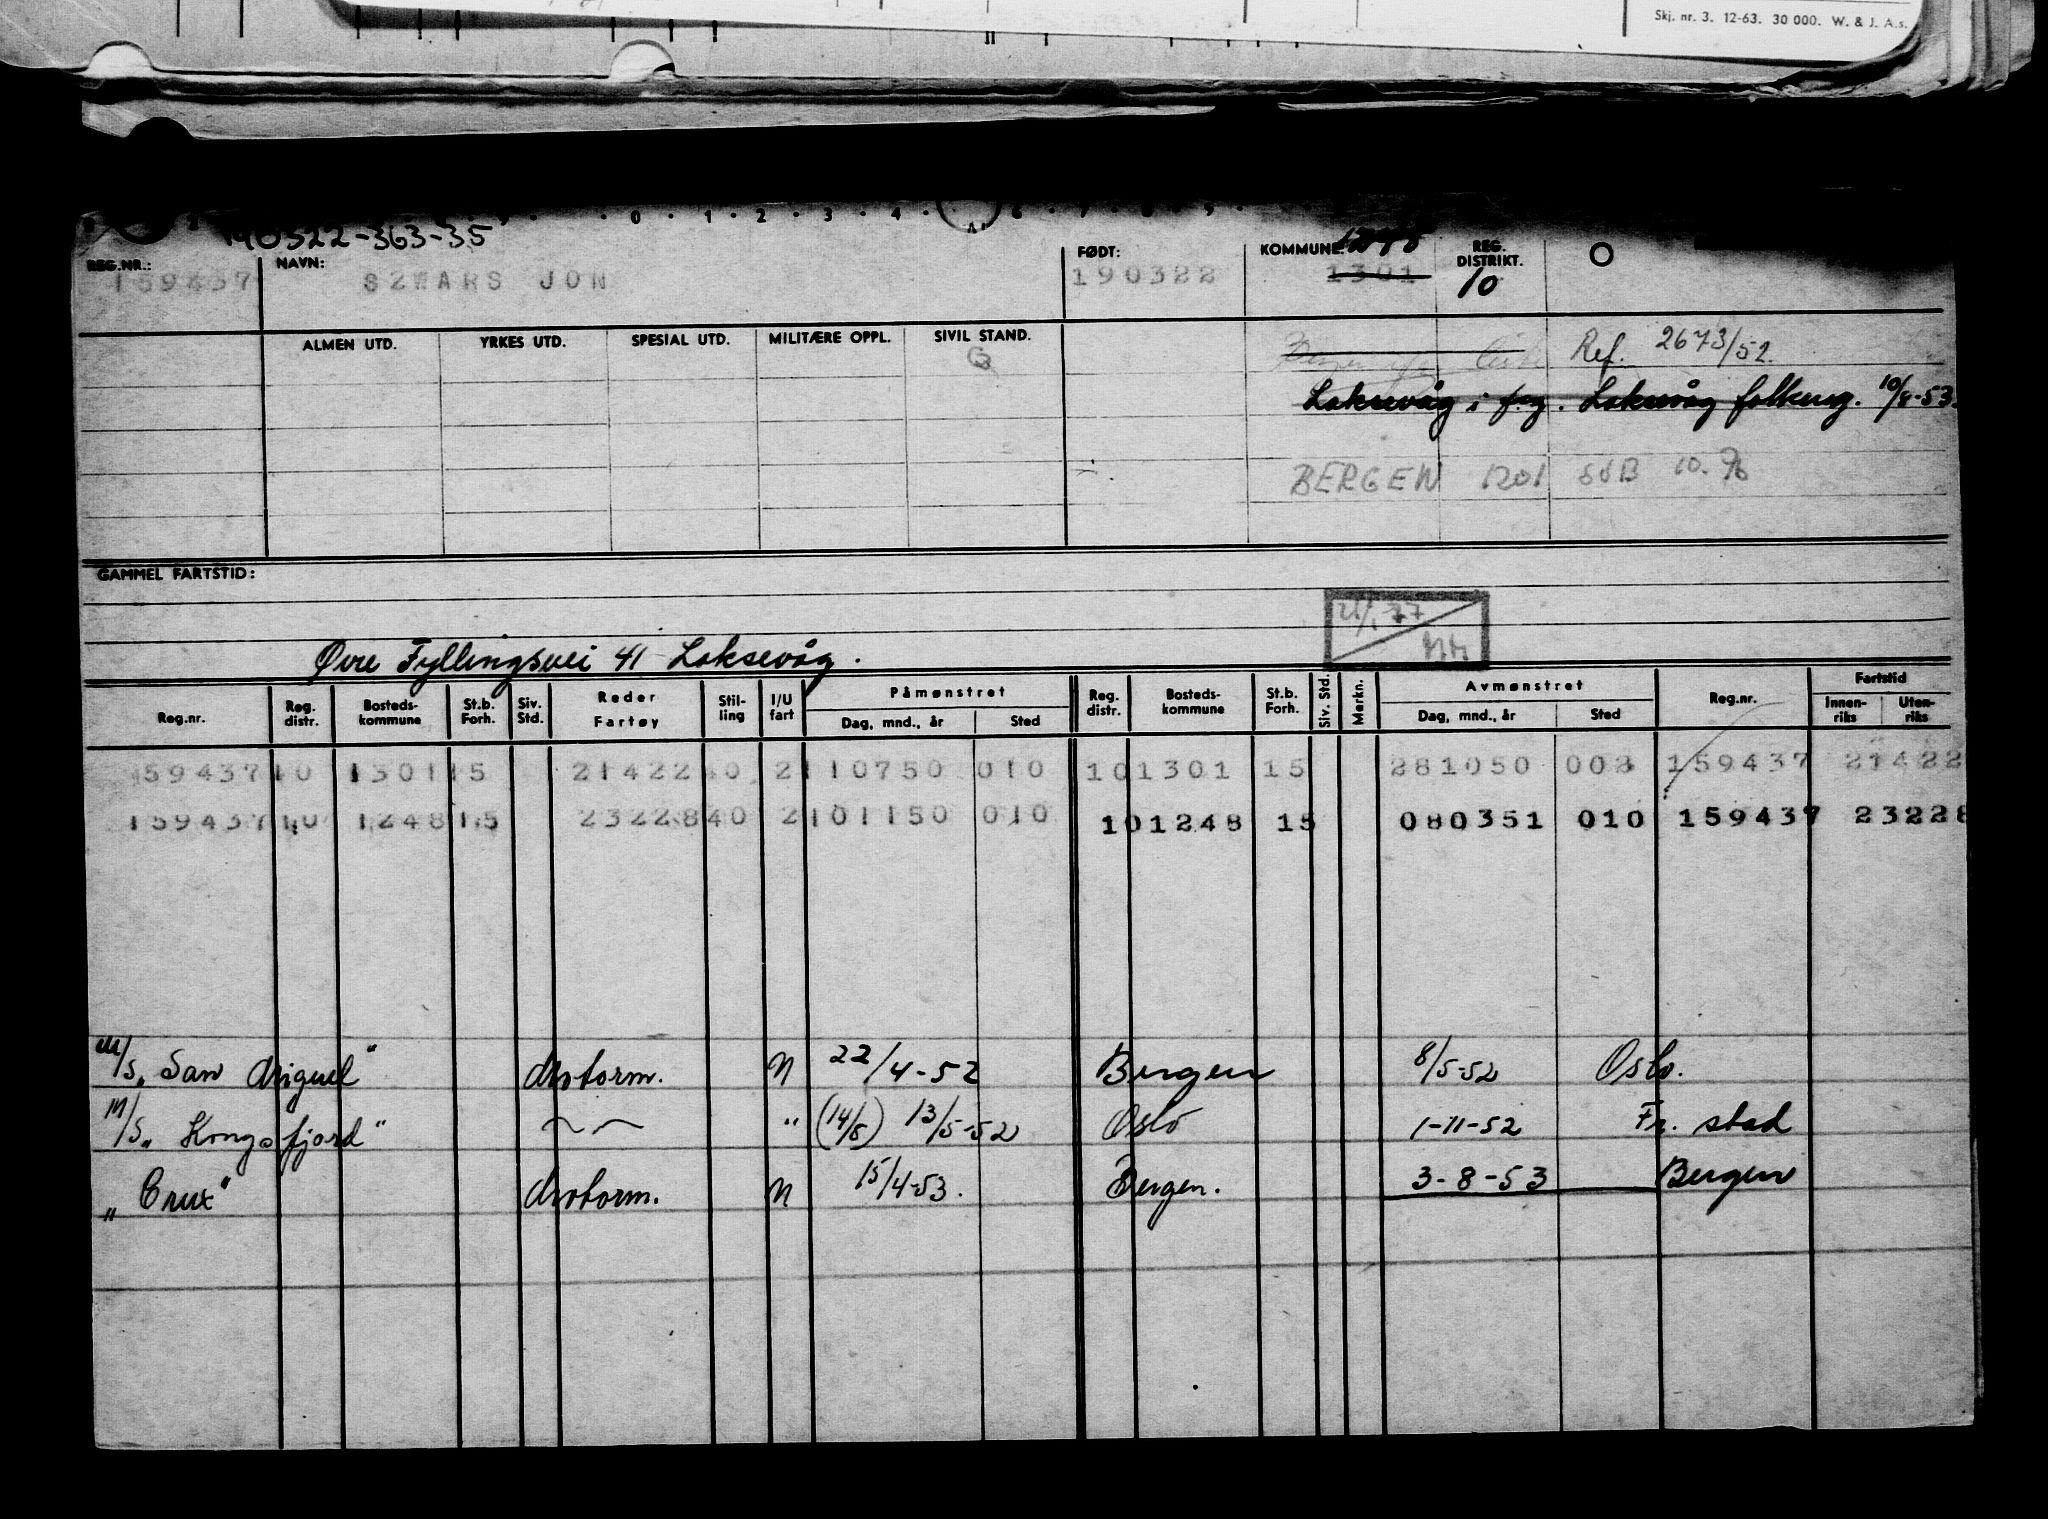 Skj. nr. 3. 12-63. 30 000. W. & J. A.s.
0 · 1 · 2 · 3 · 4 · 6 · 7 · 8 · 9 ·
190322-363-35
REG.NR.: NAVN: FØDT: KOMMUNE: 1248 REG. DISTRIKT. O
159437 SZWARS JON 190322 1301 10
ALMEN UTD. YRKES UTD. SPESIAL UTD. MILITÆRE OPPL. SIVIL STAND.
G
Ref. 2673/52.
Laksevåg i flg. Laksevåg folkereg. 10/8-53.
BERGEN 1201 SVB 10.
GAMMEL FARTSTID:
21/1-77
Øvre Fyllingsvei 41 Laksevåg.
Reg.nr. Reg. distr. Bosteds-kommune St.b. Forh. Siv. Std. Reder Fartøy Stil-ling I/U fart Påmønstret Dag, mnd., år Sted Reg. distr. Bosteds-kommune St.b. Forh. Siv. Std. Merkn. Avmønstret Dag, mnd., år Sted Reg.nr. Fartstid Innen-riks Uten-riks
159437 10 1301 15 21422 40 2 110750 010 10 1301 15 281050 008 159437 21422
159437 10 1248 15 23228 40 2 101150 010 10 1248 15 080351 010 159437 23228
M/S „San Miguel" Motorm. N 22/4-52 Bergen 8/5-52 Oslo.
M/S „Kongsfjord" —〃— " (14/5) 13/5-52 Oslo 1-11-52 Fr. stad
„Crux" Motorm. N 15/4-53. Bergen. 3-8-53 Bergen